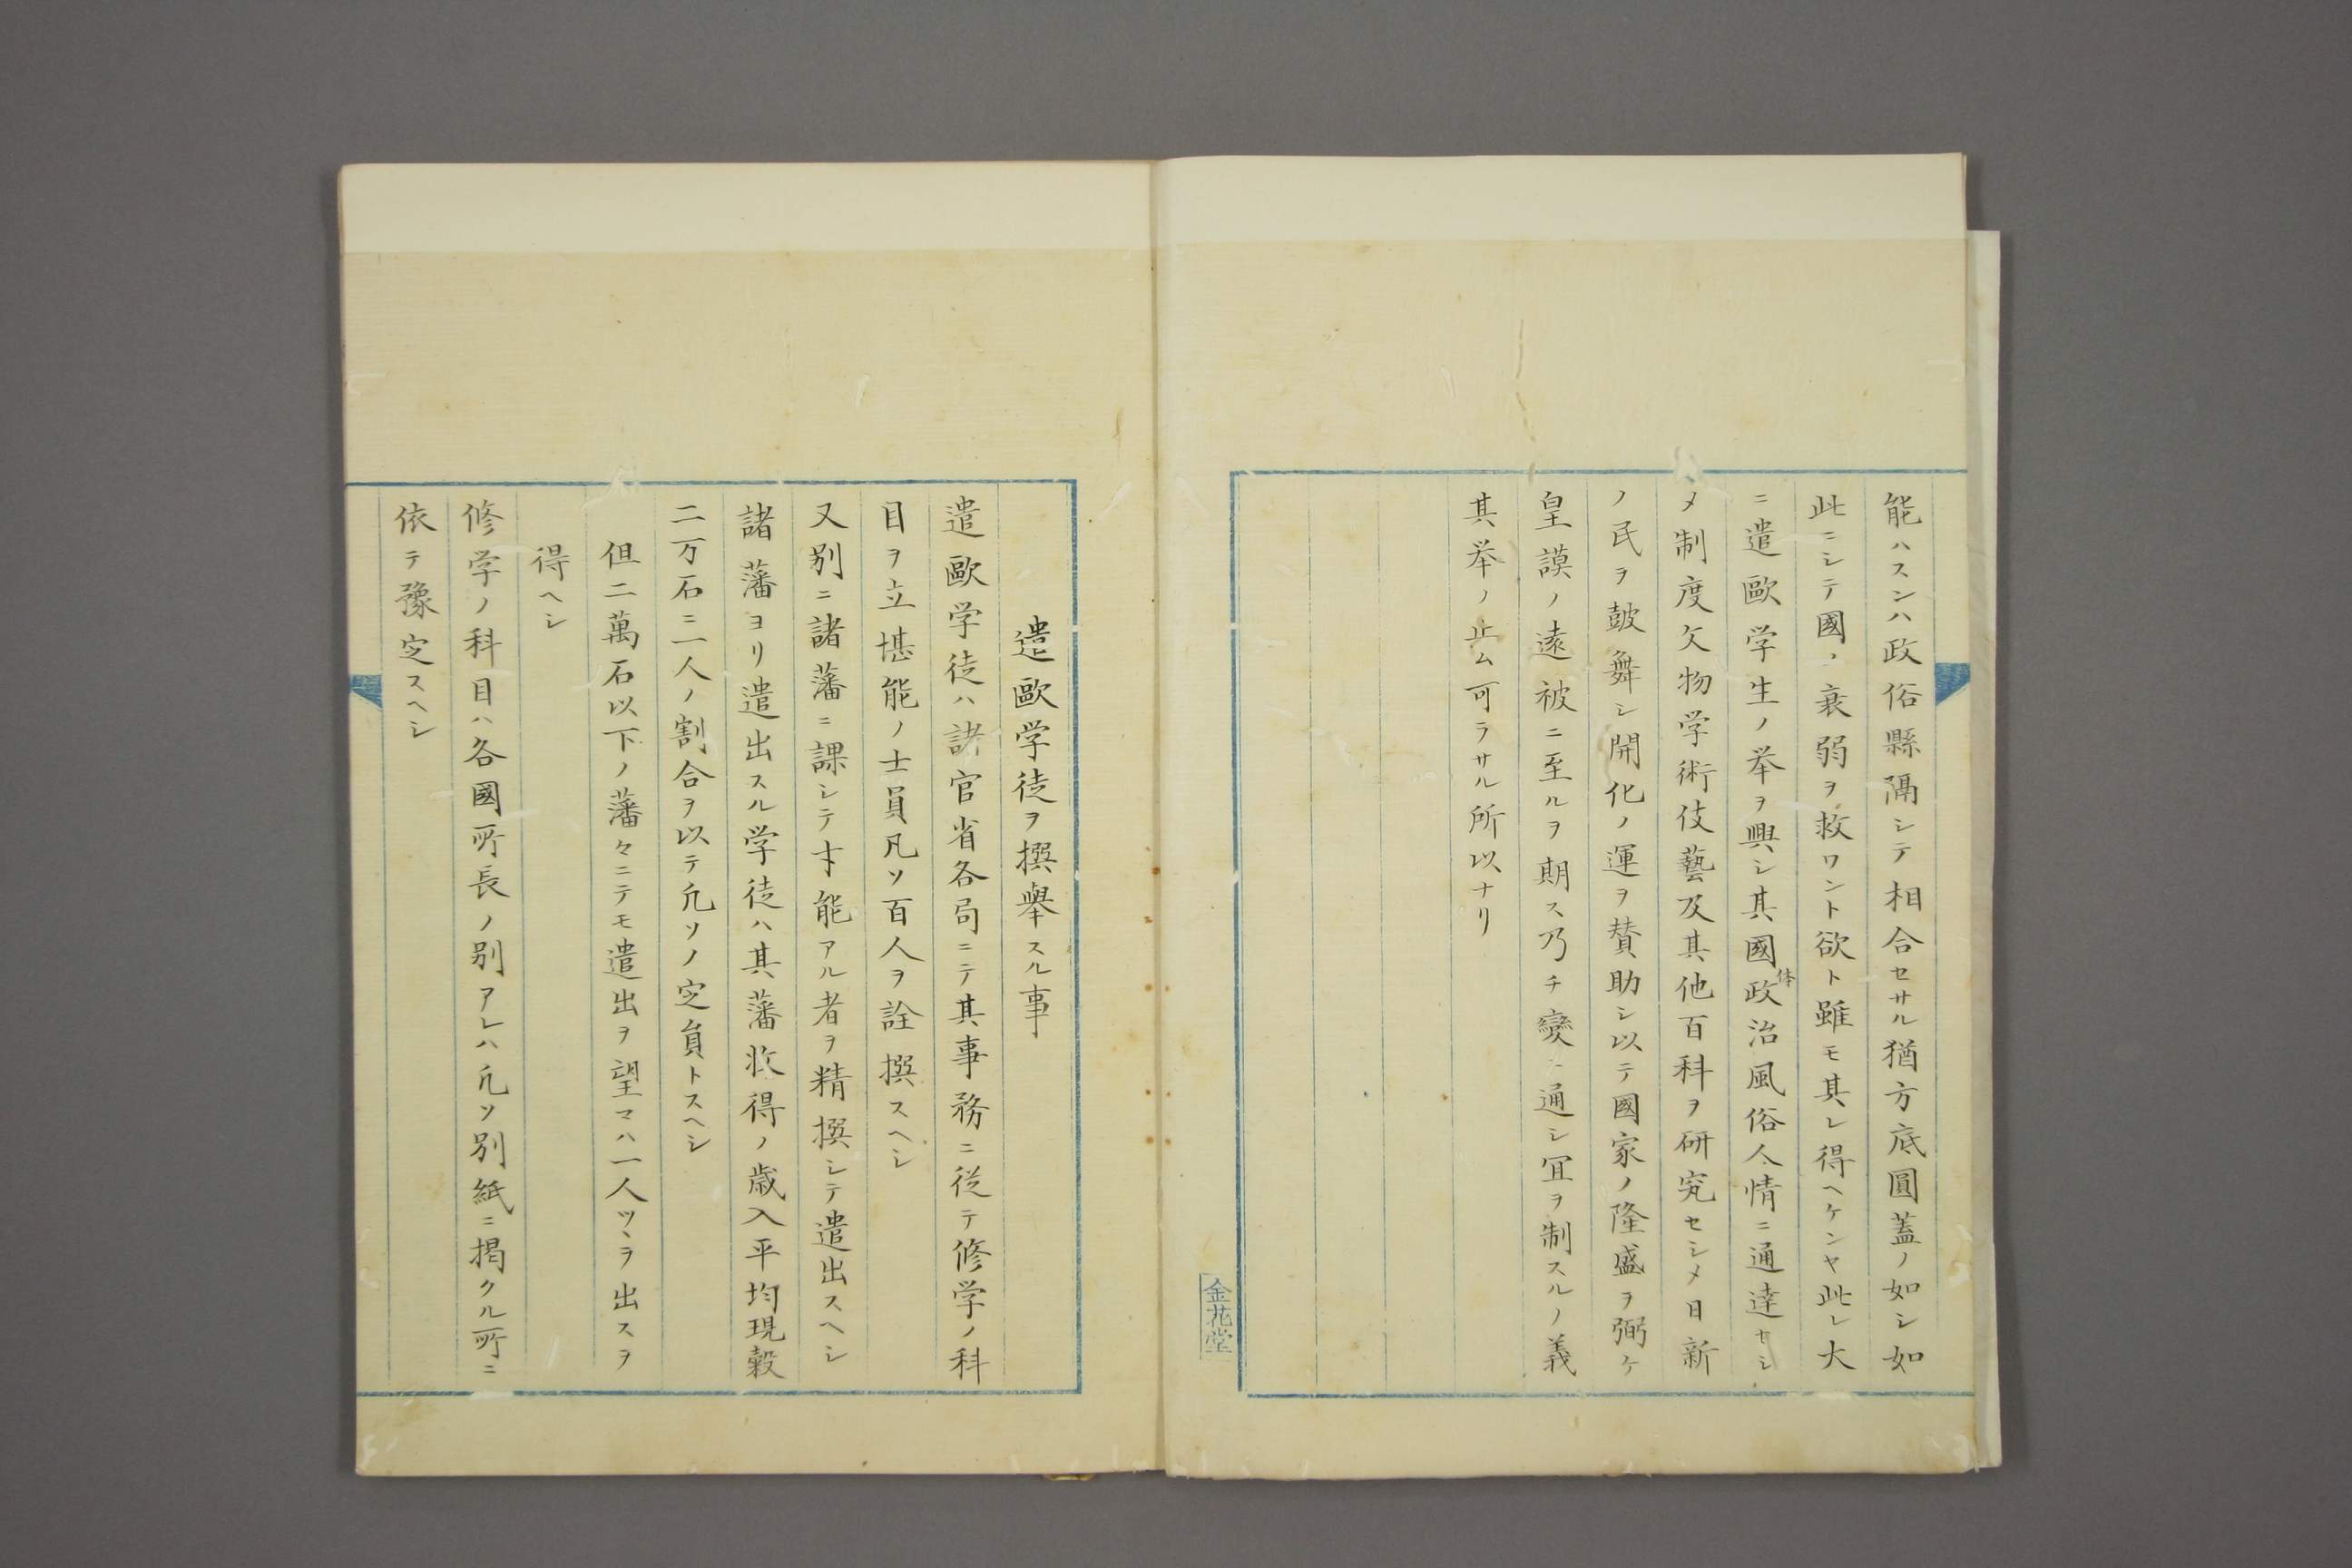 能ハスンハ政俗縣隔シテ相合セサル猶方底圓蓋ノ如シ如
此ニシテ國ノ衰弱ヲ救ワント欲ト雖モ其レ得ヘケンヤ此レ大
ニ遣歐学生ノ挙ヲ興シ其國体政治風俗人情ニ通達セシ
メ制度文物学術伎藝及其他百科ヲ研究セシメ日新
ノ民ヲ鼓舞シ開化ノ運ヲ賛助シ以テ國家ノ隆盛ヲ弼ケ
皇謨ノ遠被ニ至ルヲ期ス乃チ變ニ通シ冝ヲ制スルノ義
其挙ノ止ム可ラサル所以ナリ
金花堂
遣歐学徒ヲ撰舉スル事
遣歐学徒ハ諸官省各局ニテ其事務ニ従テ修学ノ科
目ヲ立堪能ノ士員凡ソ百人ヲ詮撰スヘシ
又別ニ諸藩ニ課シテ才能アル者ヲ精撰シテ遣出スヘシ
諸藩ヨリ遣出スル学徒ハ其藩收得ノ歳入平均現穀
二万石ニ一人ノ割合ヲ以テ凡ソノ定員トスヘシ
但二萬石以下ノ藩々ニテモ遣出ヲ望マハ一人ツヽヲ出スヲ
得ヘシ
修学ノ科目ハ各國所長ノ別アレハ凡ソ別紙ニ掲クル所ニ
依テ豫定スヘシ